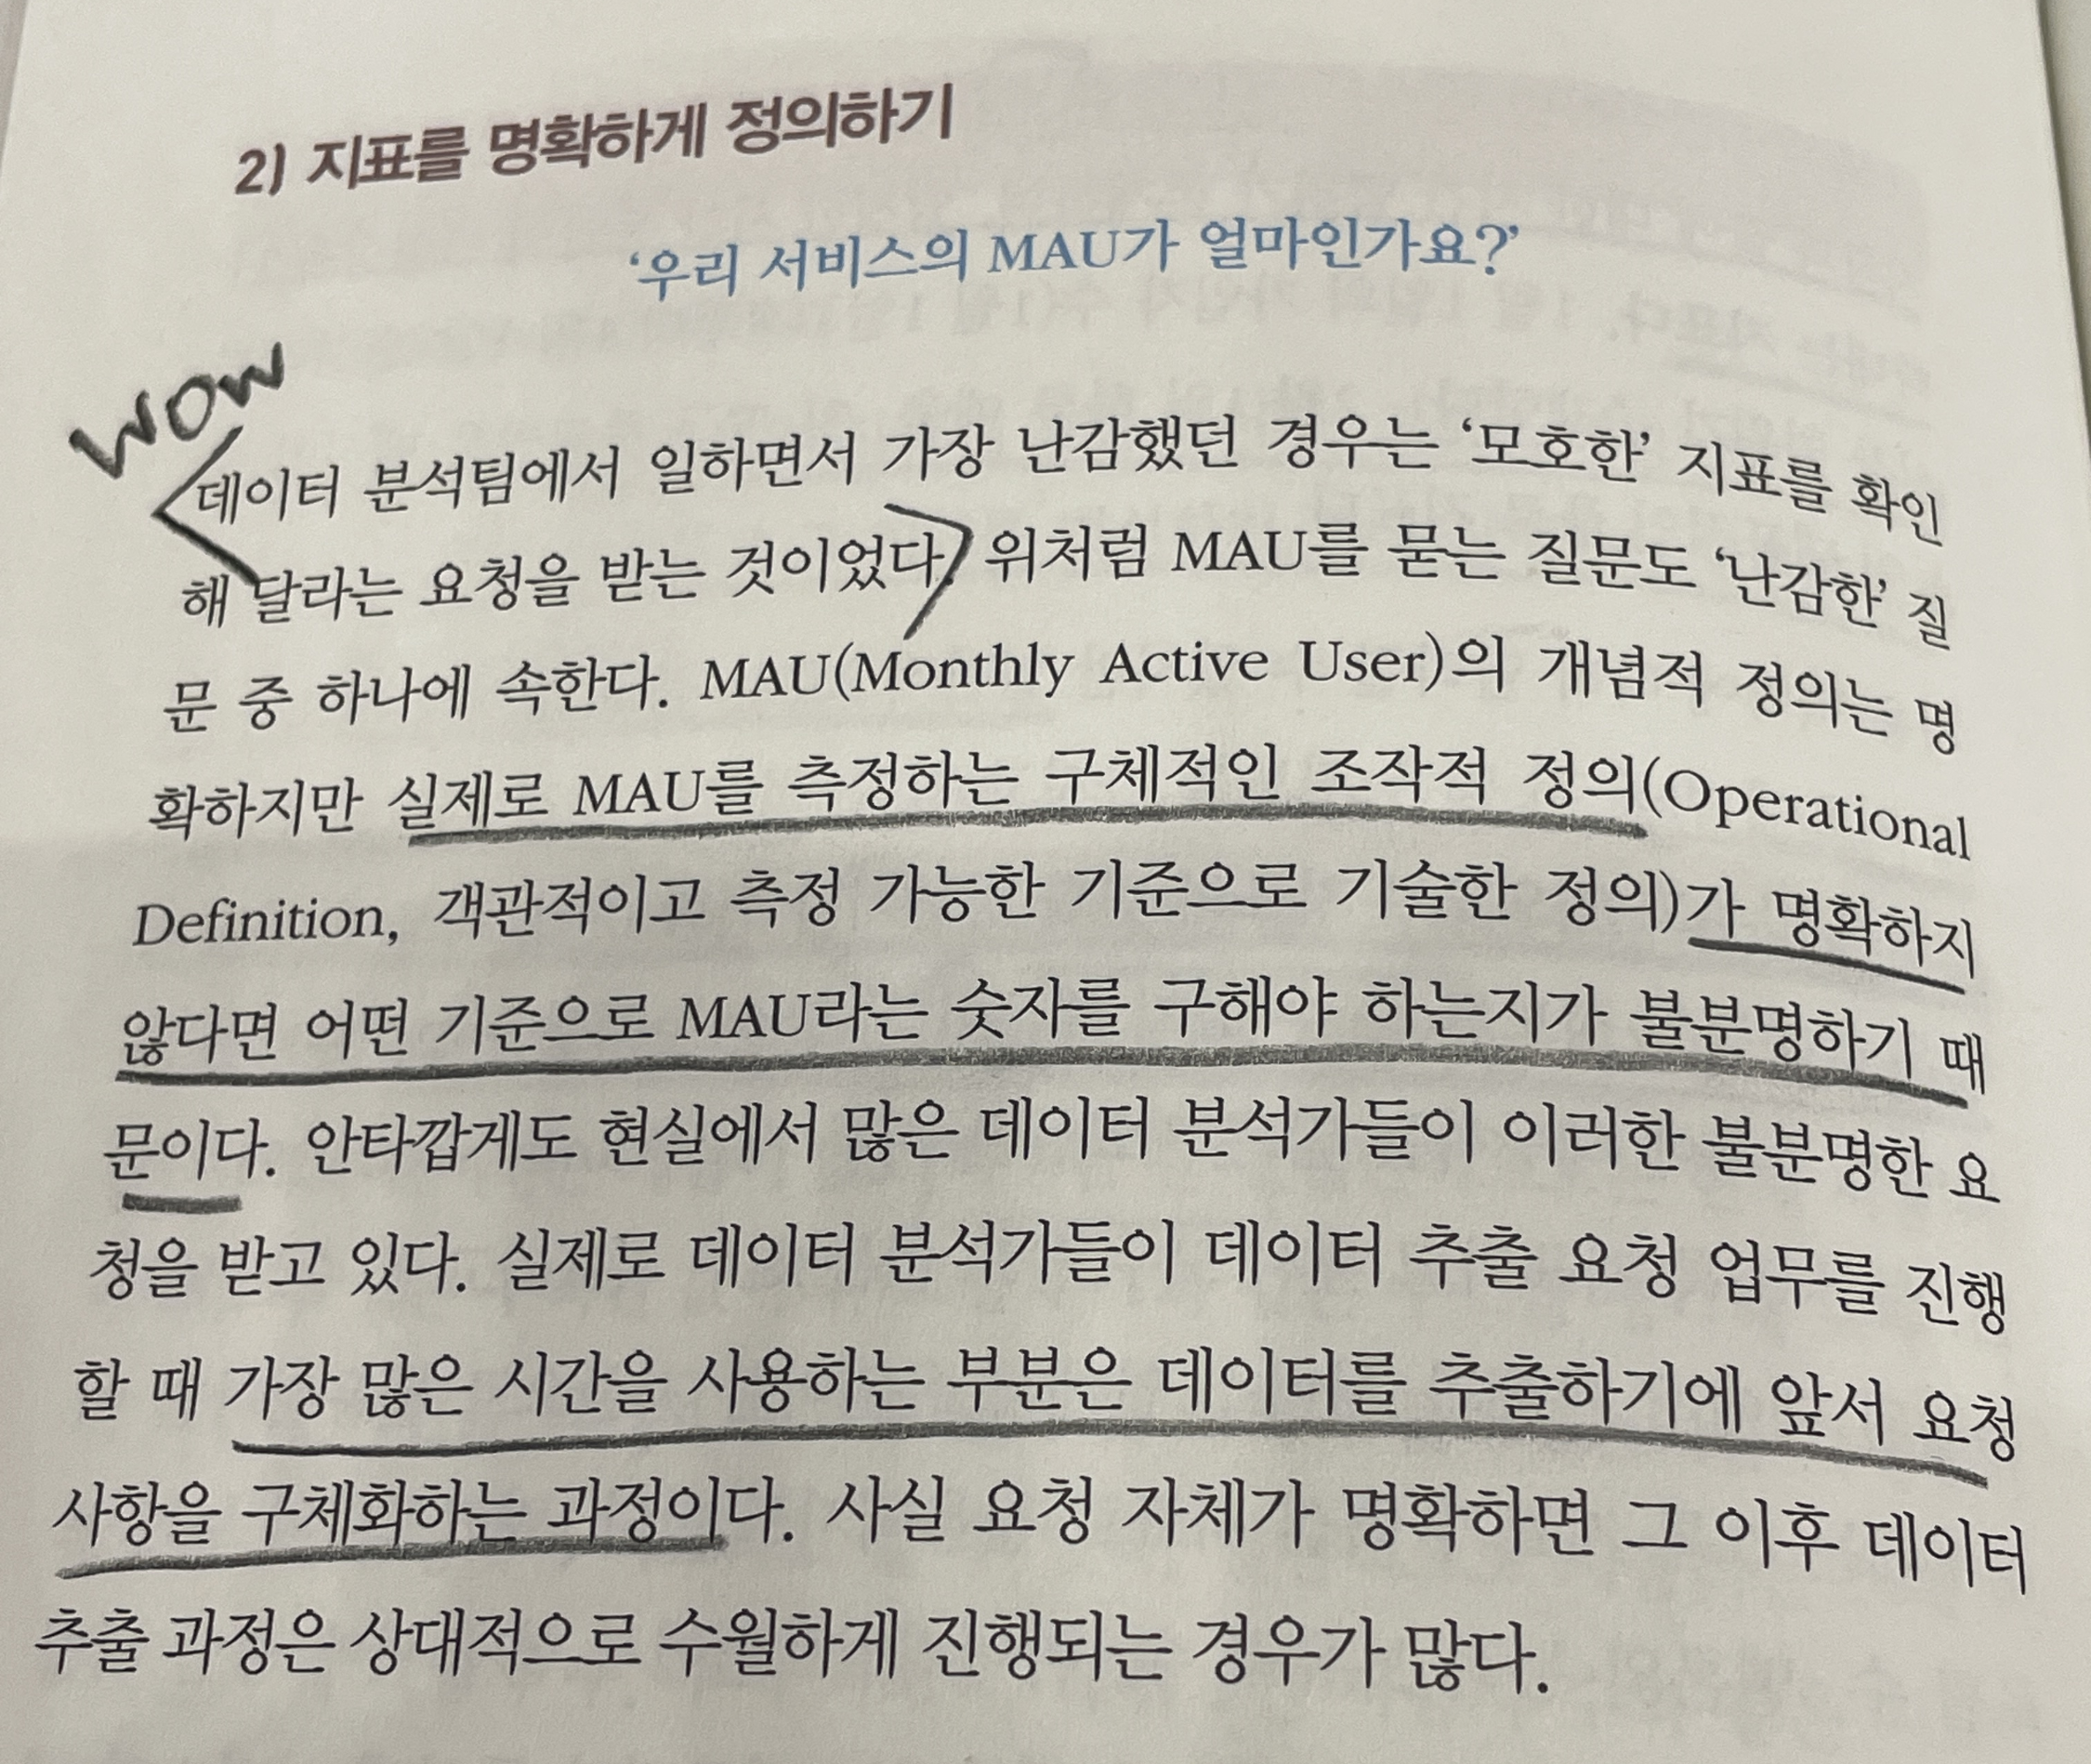 2) 지표를 명확하게 정의하기
‘우리 서비스의 MAU가 얼마인가요?’
WOW
데이터 분석팀에서 일하면서 가장 난감했던 경우는 ‘모호한’ 지표를 확인
해 달라는 요청을 받는 것이었다. 위처럼 MAU를 묻는 질문도 ‘난감한’ 질
문 중 하나에 속한다. MAU(Monthly Active User)의 개념적 정의는 명
확하지만 실제로 MAU를 측정하는 구체적인 조작적 정의(Operational
Definition, 객관적이고 측정 가능한 기준으로 기술한 정의)가 명확하지
않다면 어떤 기준으로 MAU라는 숫자를 구해야 하는지가 불분명하기 때
문이다. 안타깝게도 현실에서 많은 데이터 분석가들이 이러한 불분명한 요
청을 받고 있다. 실제로 데이터 분석가들이 데이터 추출 요청 업무를 진행
할 때 가장 많은 시간을 사용하는 부분은 데이터를 추출하기에 앞서 요청
사항을 구체화하는 과정이다. 사실 요청 자체가 명확하면 그 이후 데이터
추출 과정은 상대적으로 수월하게 진행되는 경우가 많다.